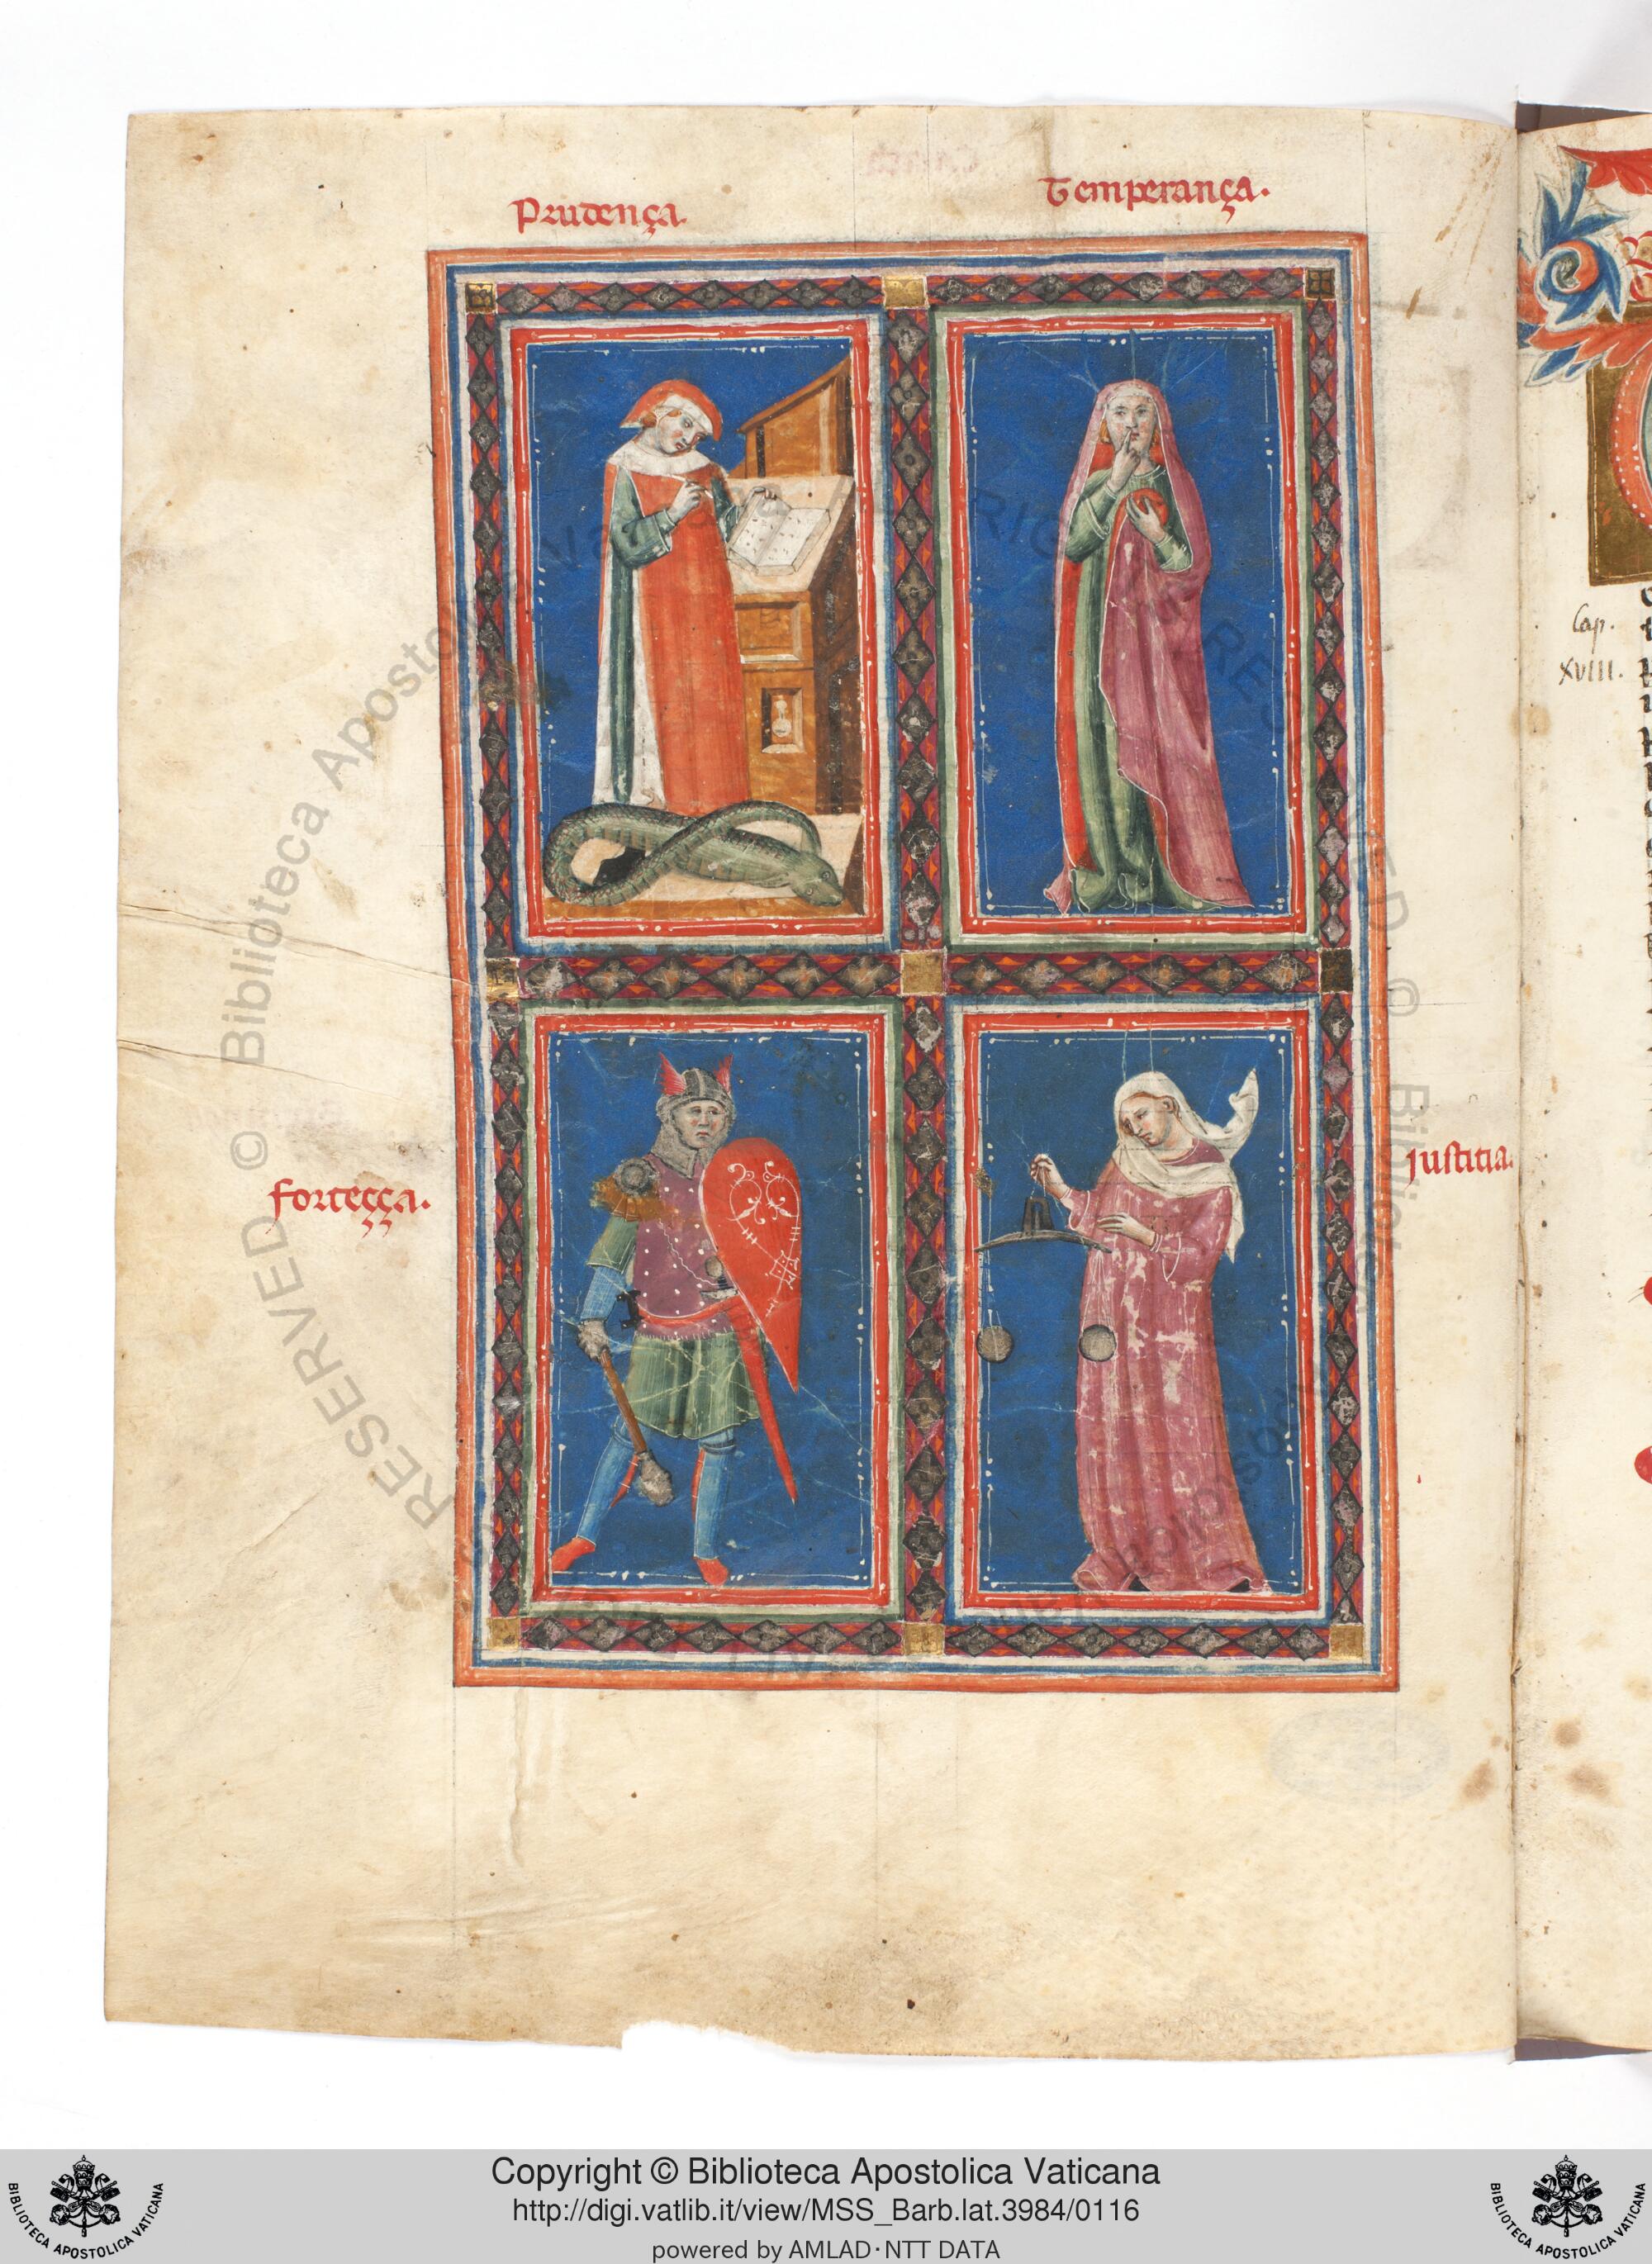 Prudença.
Temperança.
Forteçça.
Justitia.
Cap.
XVIII.
© Biblioteca Apostolica Vaticana
RESERVED
Copyright © Biblioteca Apostolica Vaticana
http://digi.vatlib.it/view/MSS_Barb.lat.3984/0116
powered by AMLAD·NTT DATA
BIBLIOTECA APOSTOLICA VATICANA
BIBLIOTECA APOSTOLICA VATICANA